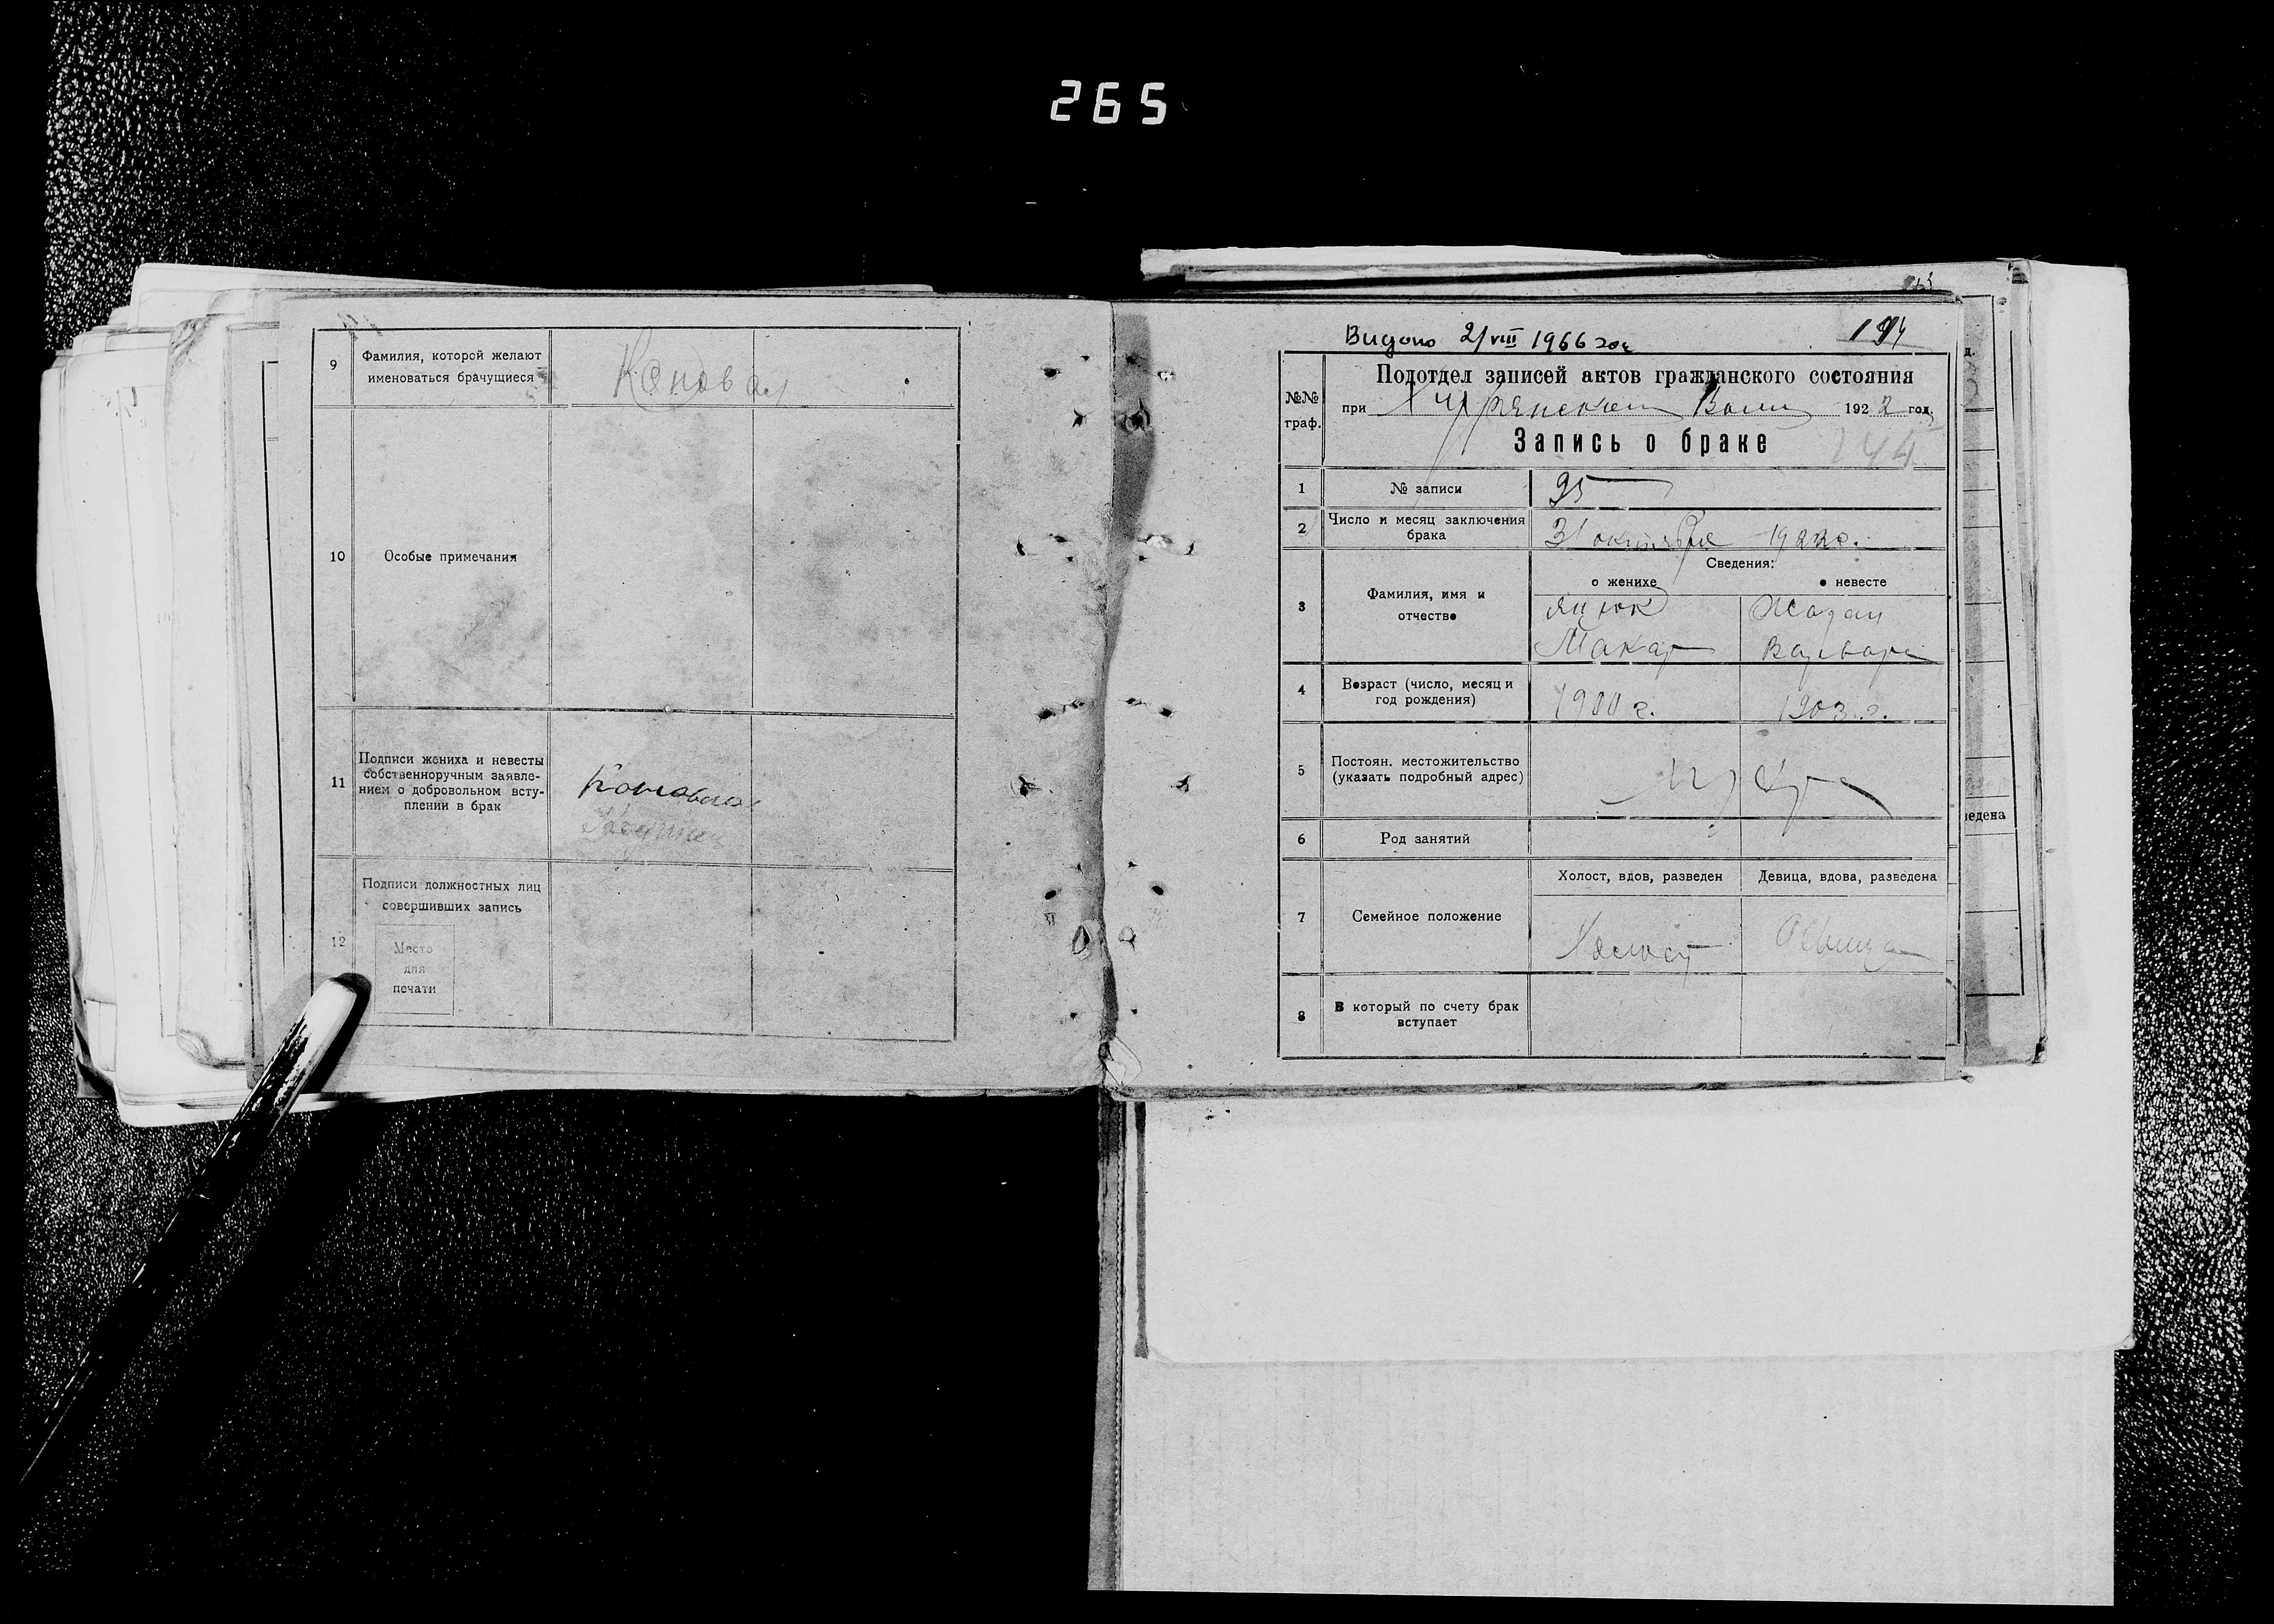 265
9
Фамилия, которой желают
именоваться брачущиеся
Коновал
10
Особые примечания
11
Подписи жениха и невесты
собственноручным заявле-
нием о добровольном всту-
плении в брак
12
Подписи должностных лиц
совершивших запись
Место
для
печати
Видано 21 VIII 1966
194
№№
граф.
Подотдел записей актов гражданского состояния
при 1922 год.
Запись о браке
144
1
№ записи
95
2
Число и месяц заключения
брака
31 октября 1922 г.
3
Фамилия, имя и
отчество
Сведения:
о женихе
о невесте
Яцюк
Жадан
Макар
Варвара
4
Возраст (число, месяц и
год рождения)
1900 г.
1903 г.
5
Постоян. местожительство
(указать подробный адрес)
6
Род занятий
7
Семейное положение
Холост, вдов, разведен
Девица, вдова, разведена
Холост
Девица
8
В который по счету брак
вступает
ведена